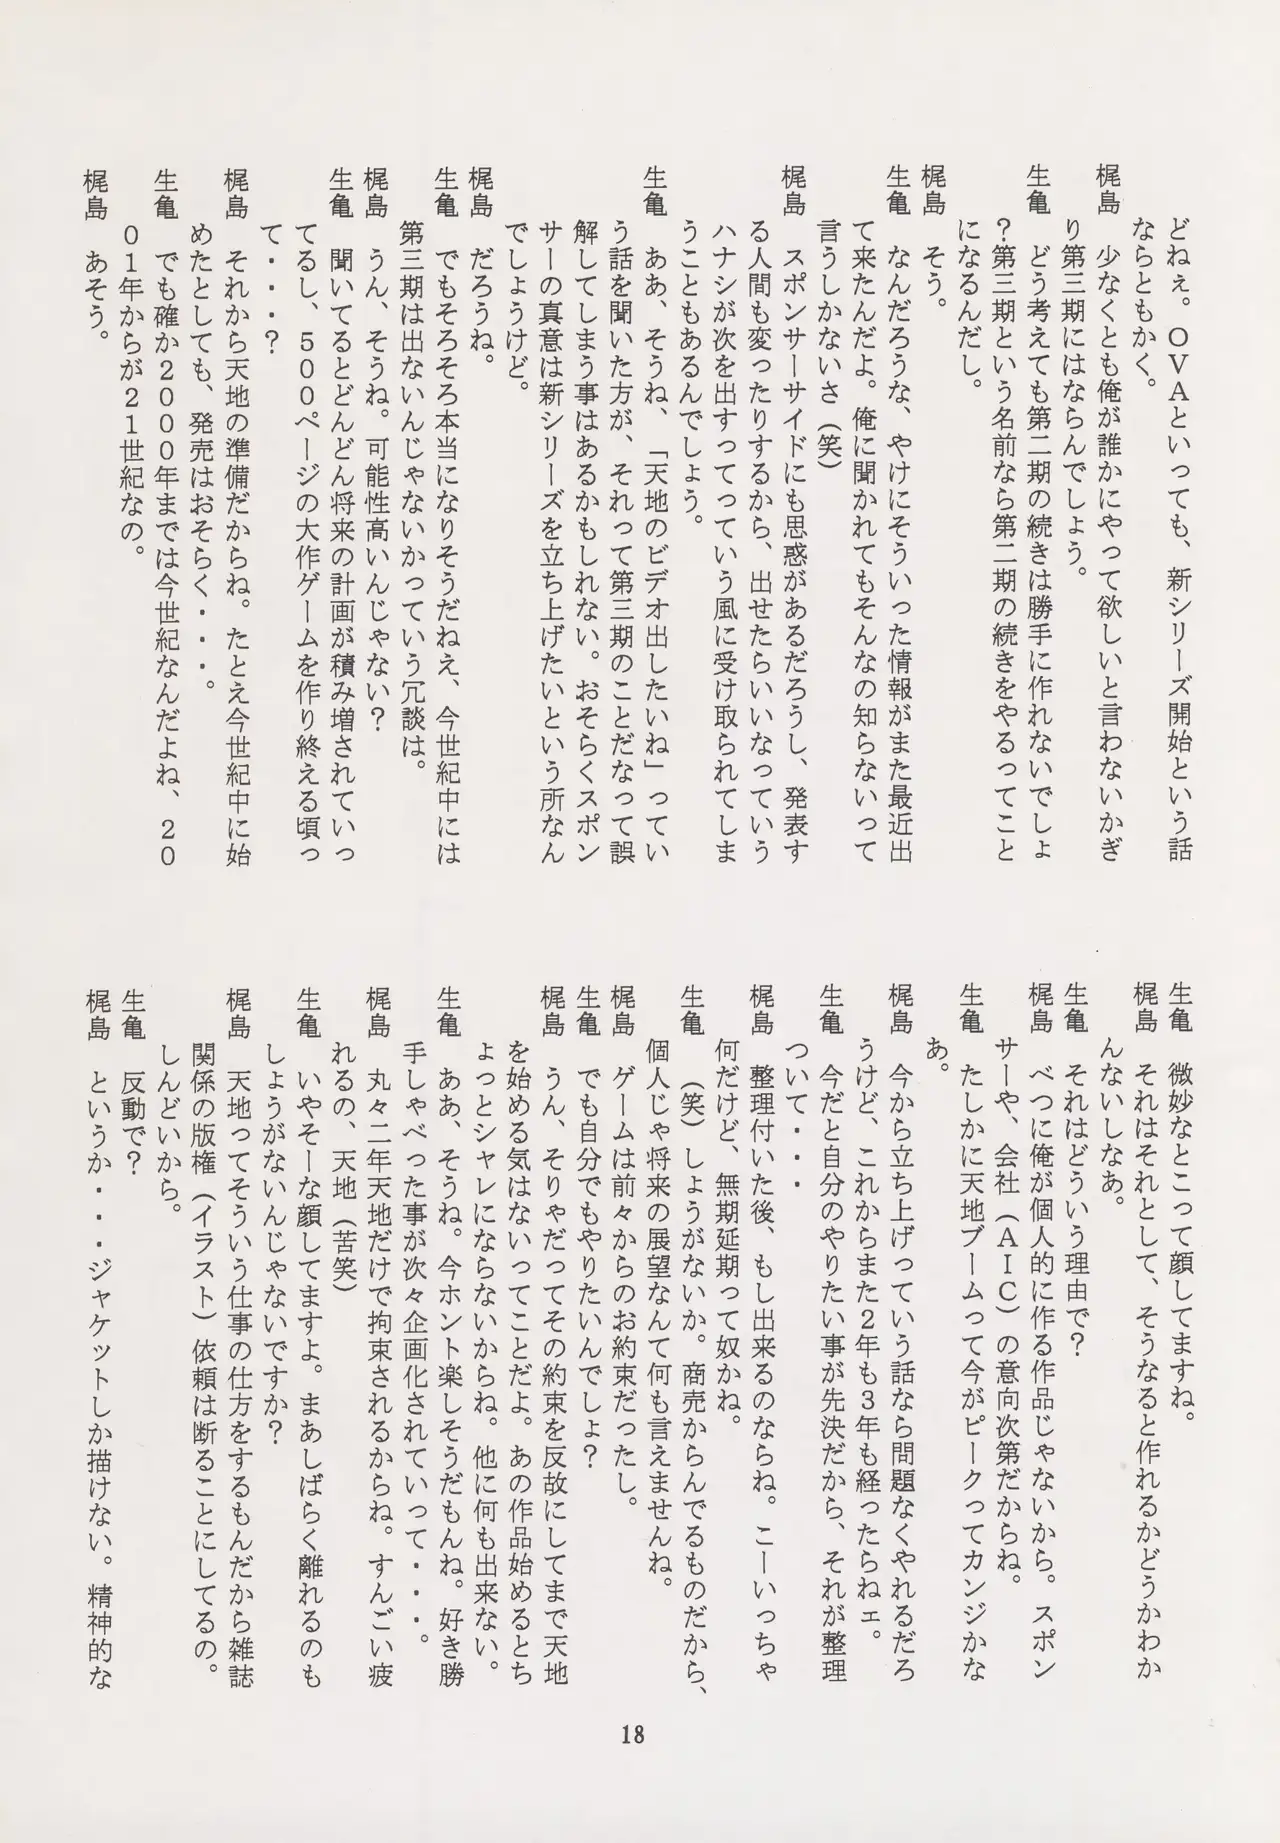 どねぇ。ＯＶＡといっても、新シリーズ開始という話
ならともかく。
梶島　少なくとも俺が誰かにやって欲しいと言わないかぎ
り第三期にはならんでしょう。
生亀　どう考えても第二期の続きは勝手に作れないでしょ
？第三期という名前なら第二期の続きをやるってこと
になるんだし。
梶島　そう。
生亀　なんだろうな、やけにそういった情報がまた最近出
て来たんだよ。俺に聞かれてもそんなの知らないって
言うしかないさ（笑）
梶島　スポンサーサイドにも思惑があるだろうし、発表す
る人間も変ったりするから、出せたらいいなっていう
ハナシが次を出すってっていう風に受け取られてしま
うこともあるんでしょう。
生亀　ああ、そうね、「天地のビデオ出したいね」ってい
う話を聞いた方が、それって第三期のことだなって誤
解してしまう事はあるかもしれない。おそらくスポン
サーの真意は新シリーズを立ち上げたいという所なん
でしょうけど。
梶島　だろうね。
生亀　でもそろそろ本当になりそうだねえ、今世紀中には
第三期は出ないんじゃないかっていう冗談は。
梶島　うん、そうね。可能性高いんじゃない？
生亀　聞いてるとどんどん将来の計画が積み増されていっ
てるし、５００ページの大作ゲームを作り終える頃っ
て・・・？
梶島　それから天地の準備だからね。たとえ今世紀中に始
めたとしても、発売はおそらく・・・。
生亀　でも確か２０００年までは今世紀なんだよね、２０
０１年からが２１世紀なの。
梶島　あそう。
生亀　微妙なとこって顔してますね。
梶島　それはそれとして、そうなると作れるかどうかわか
んないしなあ。
生亀　それはどういう理由で？
梶島　べつに俺が個人的に作る作品じゃないから。スポン
サーや、会社（ＡＩＣ）の意向次第だからね。
生亀　たしかに天地ブームって今がピークってカンジかな
あ。
梶島　今から立ち上げっていう話なら問題なくやれるだろ
うけど、これからまた２年も３年も経ったらねェ。
生亀　今だと自分のやりたい事が先決だから、それが整理
ついて・・・
梶島　整理付いた後、もし出来るのならね。こーいっちゃ
何だけど、無期延期って奴かね。
生亀　（笑）しょうがないか。商売からんでるものだから、
個人じゃ将来の展望なんて何も言えませんね。
梶島　ゲームは前々からのお約束だったし。
生亀　でも自分でもやりたいんでしょ？
梶島　うん、そりゃだってその約束を反故にしてまで天地
を始める気はないってことだよ。あの作品始めるとち
ょっとシャレにならないからね。他に何も出来ない。
生亀　ああ、そうね。今ホント楽しそうだもんね。好き勝
手しゃべった事が次々企画化されていって・・・。
梶島　丸々二年天地だけで拘束されるからね。すんごい疲
れるの、天地（苦笑）
生亀　いやそーな顔してますよ。まあしばらく離れるのも
しょうがないんじゃないですか？
梶島　天地ってそういう仕事の仕方をするもんだから雑誌
関係の版権（イラスト）依頼は断ることにしてるの。
しんどいから。
生亀　反動で？
梶島　というか・・・ジャケットしか描けない。精神的な
18